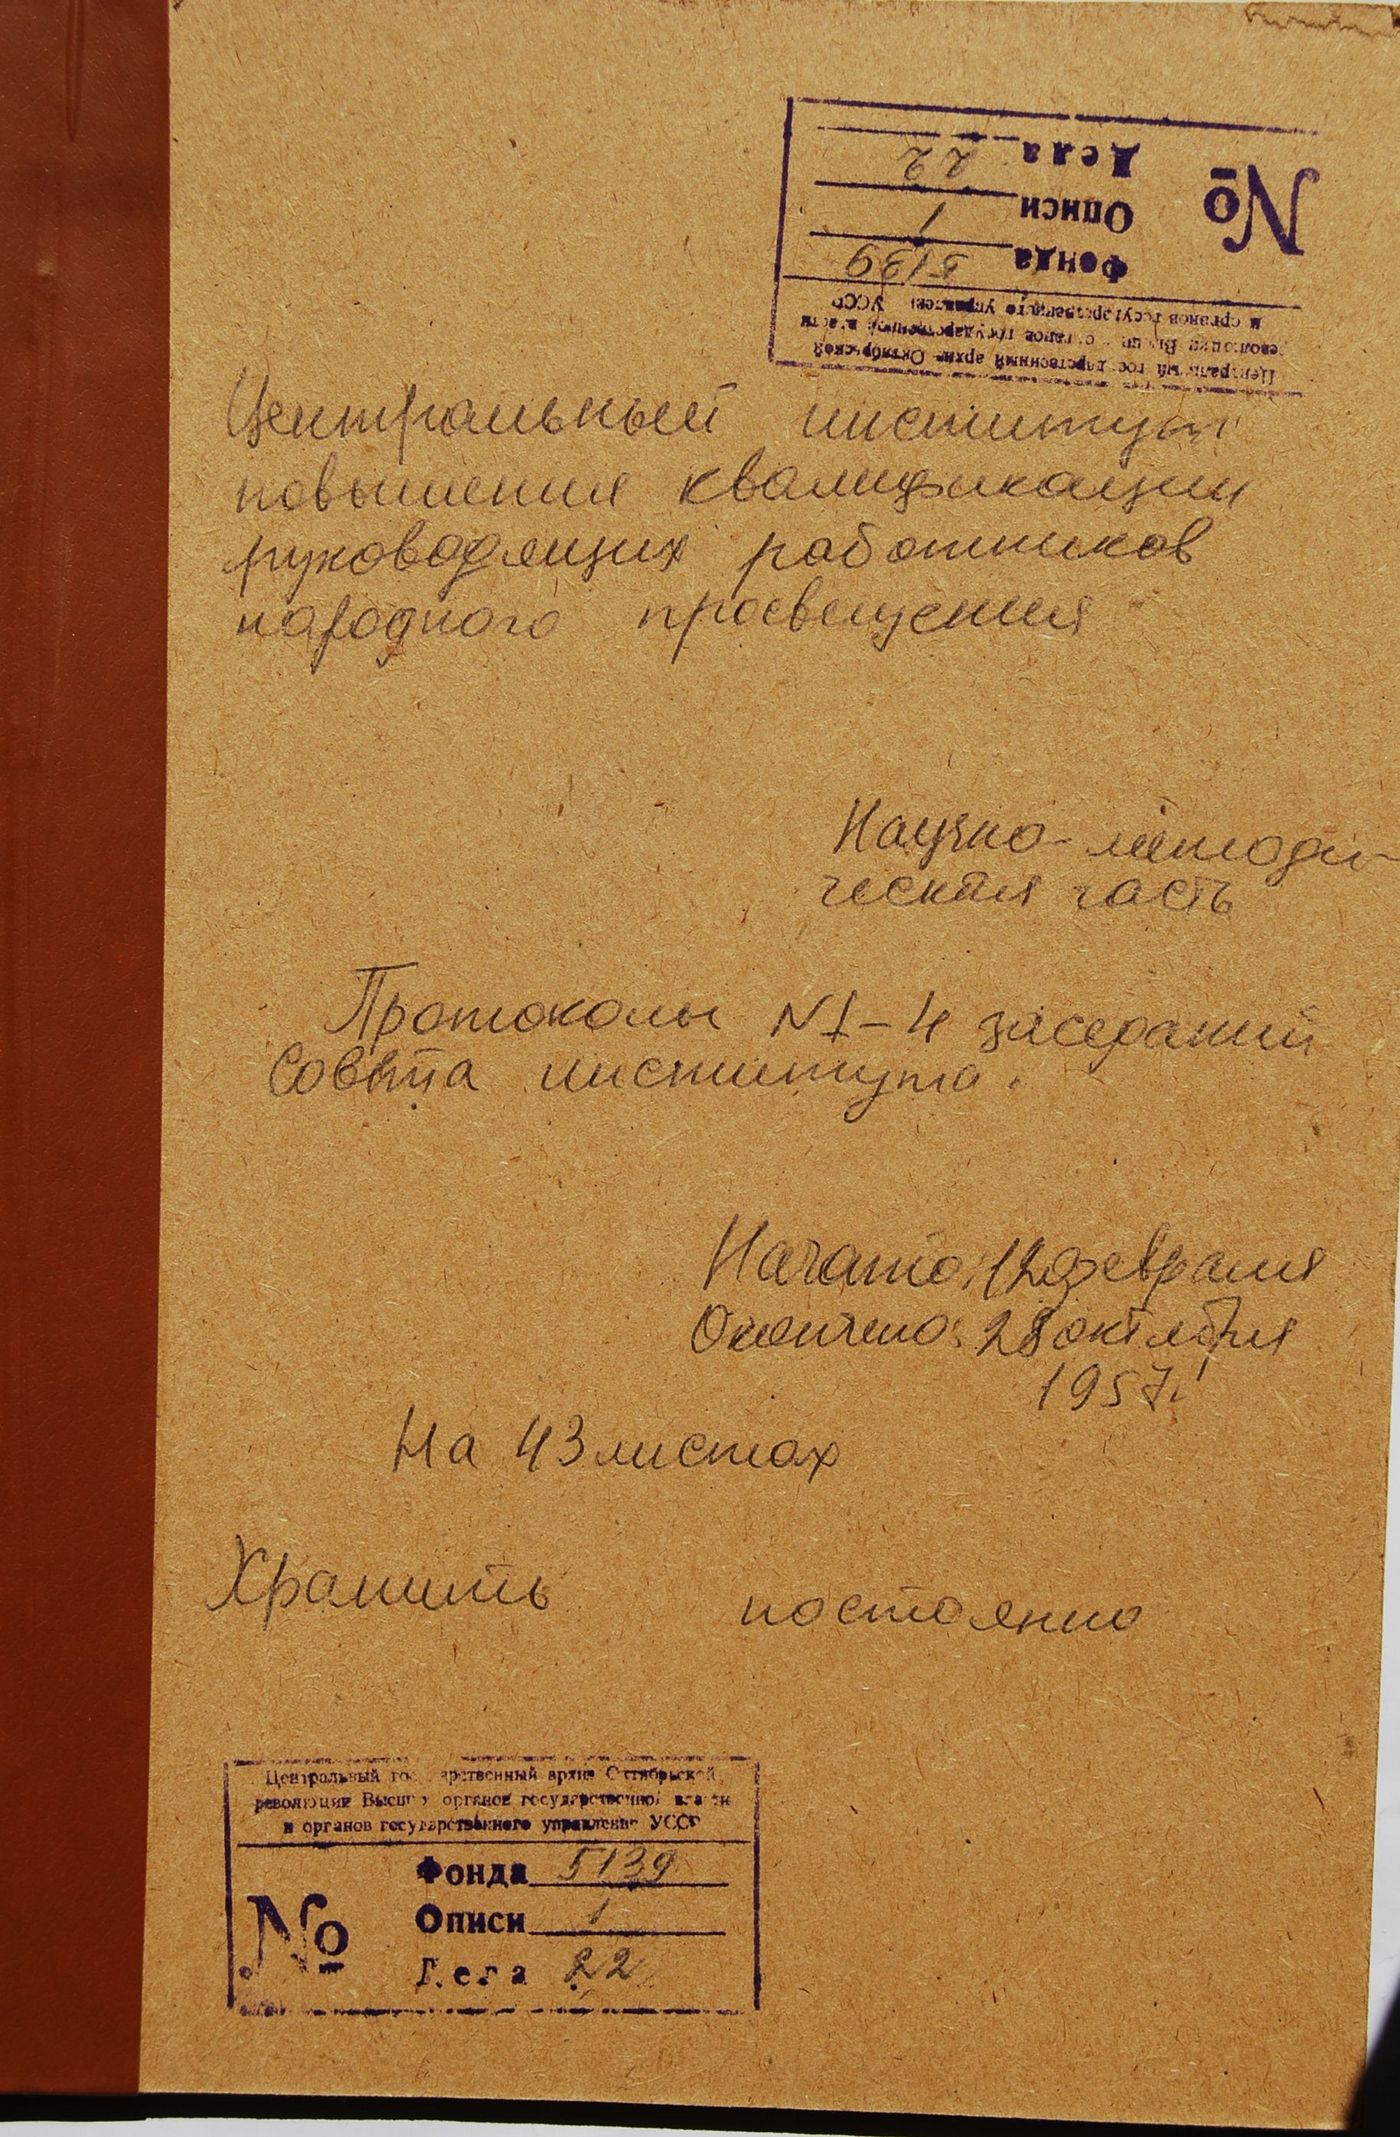 Центральный государственный архив Октябрьской
революции Высших органов государственной власти
и органов государственного управления УССР
Фонда 5139
№ Описи 1
Дела 22
Центральный институт
повышения квалификации
руководящих работников
народного просвещения
Научно-методи-
ческая часть
Протоколы N1-4 заседаний
Совета института.
Начато: 12 февраля
Окончено: 28 октября
1957г.
На 43 листах
Хранить постоянно
Центральный государственный архив Октябрьской
революции Высших органов государственной власти
и органов государственного управления УССР
Фонда 5139
№ Описи 1
Дела 22